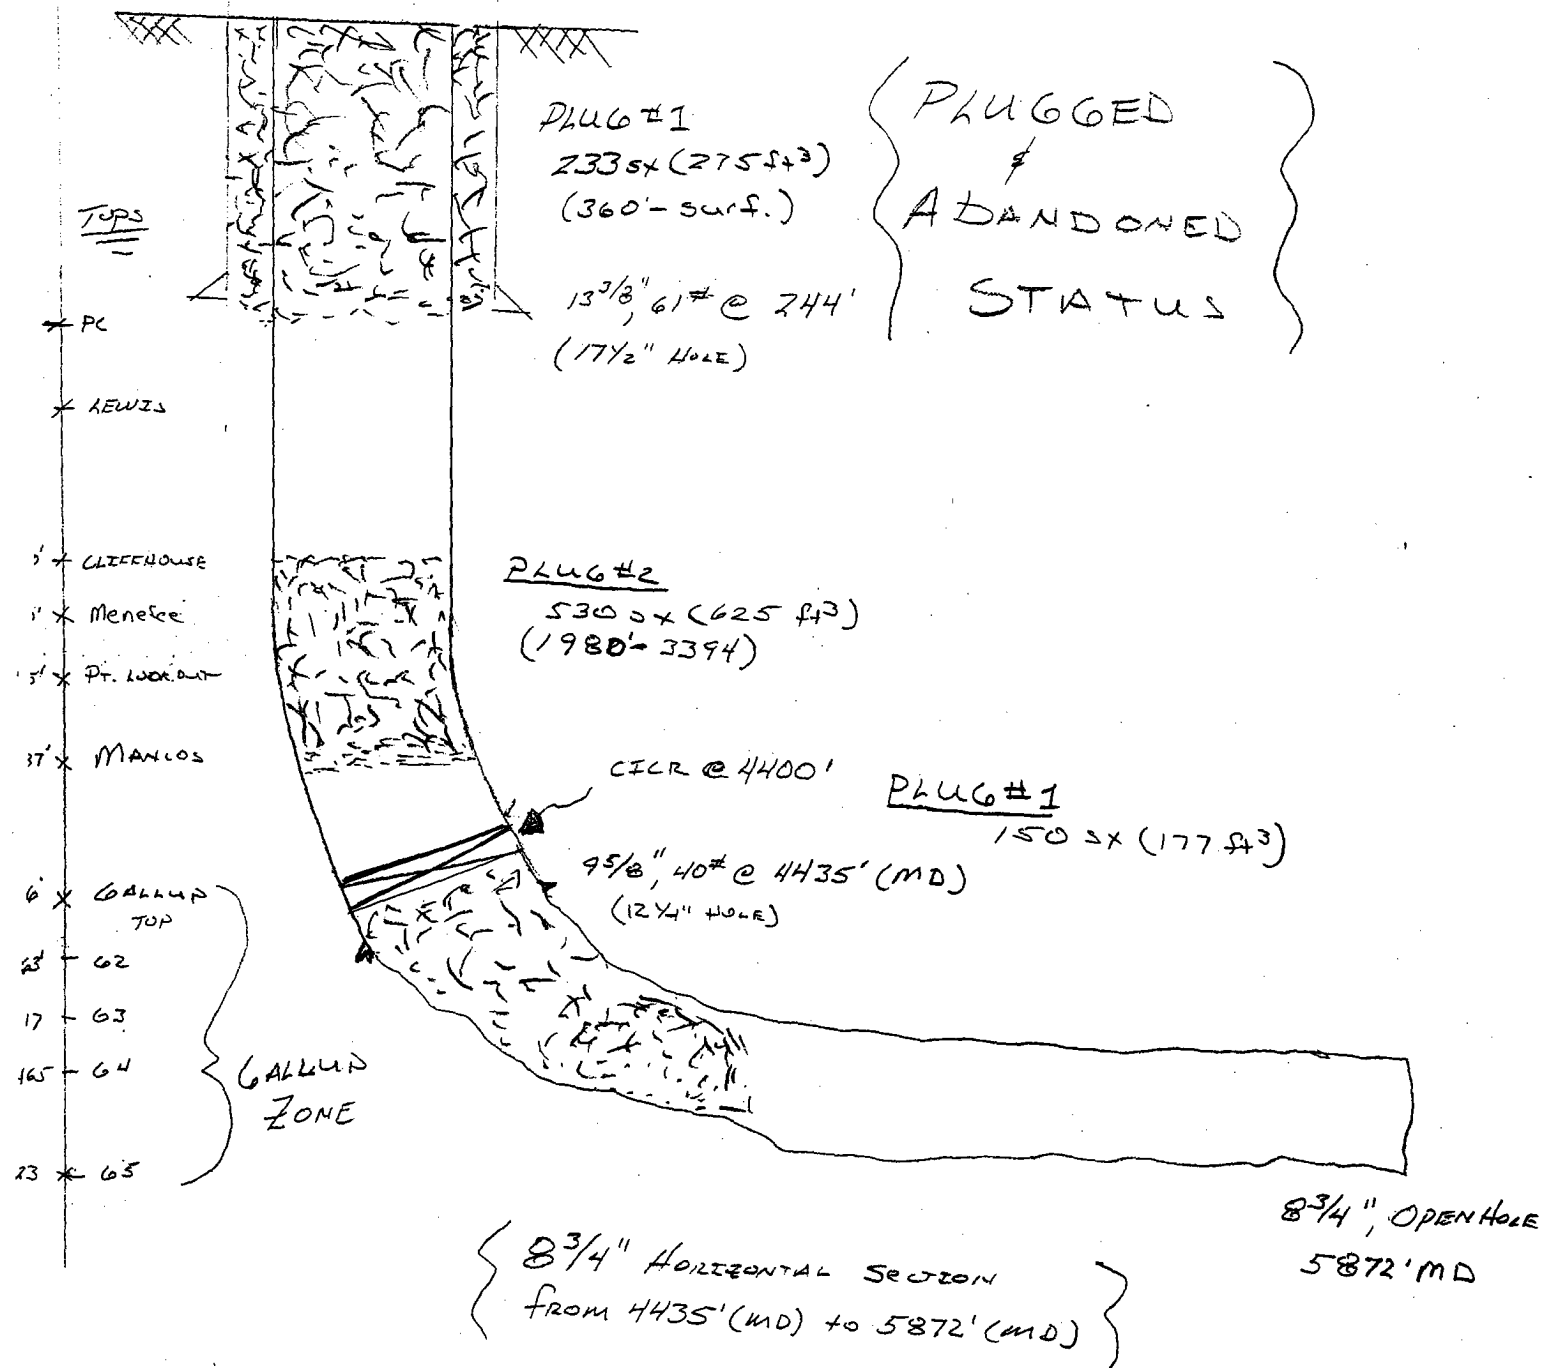 PLUG #1
233 sx (275 ft³)
(360' - surf.)
13 3/8", 61# @ 244'
(17 1/2" HOLE)
PLUGGED
&
ABANDONED
STATUS
TOPS
PC
LEWIS
CLIFFHOUSE
Menefee
PT. LOOKOUT
37' MANCOS
6' GALLUP
TOP
G2
17 G3
165 G4
23 G5
GALLUP
ZONE
PLUG #2
530 sx (625 ft³)
(1980' - 3394)
CICR @ 4400'
PLUG #1
150 sx (177 ft³)
9 5/8", 40# @ 4435' (MD)
(12 1/4" HOLE)
8 3/4", OPEN HOLE
5872' MD
8 3/4" HORIZONTAL SECTION
from 4435' (MD) to 5872' (MD)